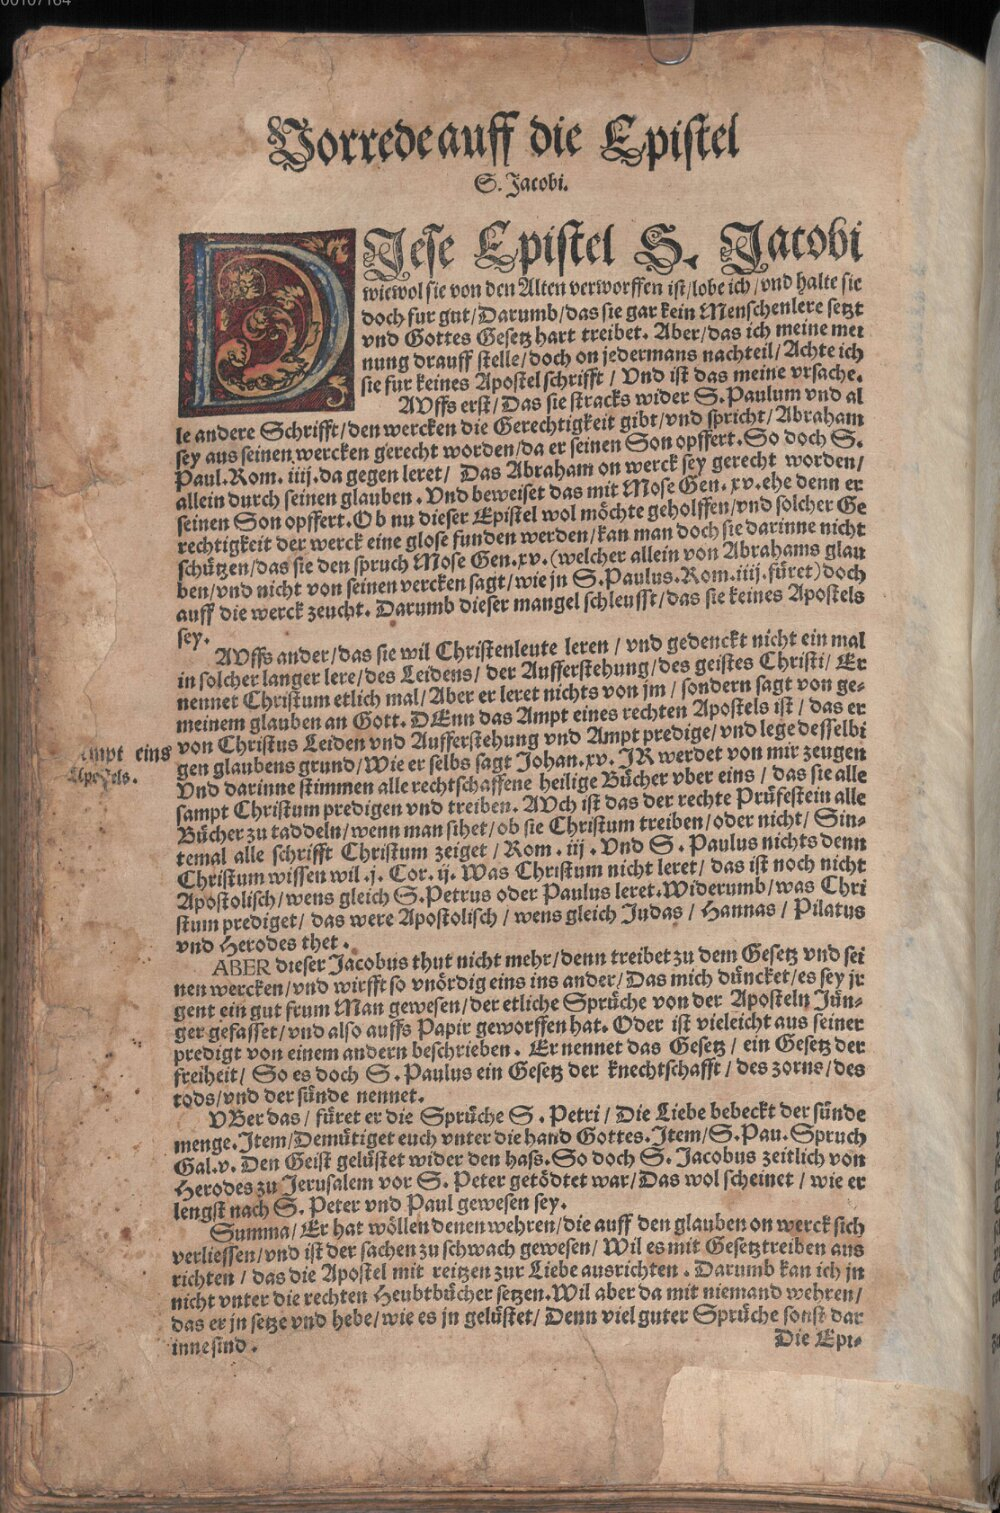 00107164
Vorrede auff die Epistel
S. Jacobi.
DIese Epistel S. Jacobi
wiewol sie von den Alten verworffen ist/lobe ich/vnd halte sie
doch fur gut/Darumb/das sie gar kein Menschenlere setzt
vnd Gottes Gesetz hart treibet. Aber/das ich meine mei
nung drauff stelle/doch on jedermans nachteil/Achte ich
sie fur keines Apostel schrifft/Vnd ist das meine vrsache.
AVffs erst/Das sie stracks wider S. Paulum vnd al
le andere Schrifft/den wercken die Gerechtigkeit gibt/vnd spricht/Abraham
sey aus seinen wercken gerecht worden/da er seinen Son opffert. So doch S.
Paul. Rom. iiij. da gegen leret/ Das Abraham on werck sey gerecht worden/
allein durch seinen glauben. Vnd beweiset das mit Mose Gen. xv. ehe denn er
seinen Son opffert. Ob nu dieser Epistel wol möchte geholffen/vnd solcher Ge
rechtigkeit der werck eine glose funden werden/kan man doch sie darinne nicht
schützen/das sie den spruch Mose Gen. xv. (welcher allein von Abrahams glau
ben/vnd nicht von seinen vercken sagt/wie jn S. Paulus. Rom. iiij. füret) doch
auff die werck zeucht. Darumb dieser mangel schleusst/das sie keines Apostels
sey.
AVffs ander/das sie wil Christenleute leren/ vnd gedenckt nicht ein mal
in solcher langer lere/des Leidens/ der Aufferstehung/des geistes Christi/ Er
nennet Christum etlich mal/Aber er leret nichts von jm/ sondern sagt von ge-
meinem glauben an Gott. DEnn das Ampt eines rechten Apostels ist/ das er
von Christus Leiden vnd Aufferstehung vnd Ampt predige/vnd lege desselbi
gen glaubens grund/Wie er selbs sagt Johan. xv. JR werdet von mir zeugen
Vnd darinne stimmen alle rechtschaffene heilige Bücher vber eins/ das sie alle
sampt Christum predigen vnd treiben. AVch ist das der rechte Prüfestein alle
Bücher zu taddeln/wenn man sihet/ob sie Christum treiben/oder nicht/ Sin-
temal alle schrifft Christum zeiget/ Rom. iij. Vnd S. Paulus nichts denn
Christum wissen wil .j. Cor. ij. Was Christum nicht leret/ das ist noch nicht
Apostolisch/wens gleich S. Petrus oder Paulus leret. Widerumb/was Chri
stum prediget/ das were Apostolisch/ wens gleich Judas/ Hannas/ Pilatus
vnd Herodes thet.
Ampt eins
Apostels.
ABER dieser Jacobus thut nicht mehr/denn treibet zu dem Gesetz vnd sei
nen wercken/vnd wirfft so vnördig eins ins ander/ Das mich düncket/es sey jr
gent ein gut frum Man gewesen/der etliche Sprüche von der Aposteln Jün-
ger gefasset/vnd also auffs Papir geworffen hat. Oder ist vieleicht aus seiner
predigt von einem andern beschrieben. Er nennet das Gesetz/ ein Gesetz der
freiheit/ So es doch S. Paulus ein Gesetz der knechtschafft/ des zorns/des
tods/vnd der sünde nennet.
VBer das/ füret er die Sprüche S. Petri/ Die Liebe bebeckt der sünde
menge. Item/Demütiget euch vnter die hand Gottes. Item/S. Pau. Spruch
Gal. v. Den Geist gelüstet wider den hass. So doch S. Jacobus zeitlich von
Herodes zu Jerusalem vor S. Peter getödtet war/Das wol scheinet/ wie er
lengst nach S. Peter vnd Paul gewesen sey.
Summa/ Er hat wöllen denen wehren/die auff den glauben on werck sich
verliessen/vnd ist der sachen zu schwach gewesen/ Wil es mit Gesetz treiben aus
richten/ das die Apostel mit reitzen zur Liebe ausrichten. Darumb kan ich jn
nicht vnter die rechten Heubtbücher setzen. Wil aber da mit niemand wehren/
das er jn setze vnd hebe/wie es jn gelüstet/ Denn viel guter Sprüche sonst dar
inne sind.
Die Epi-